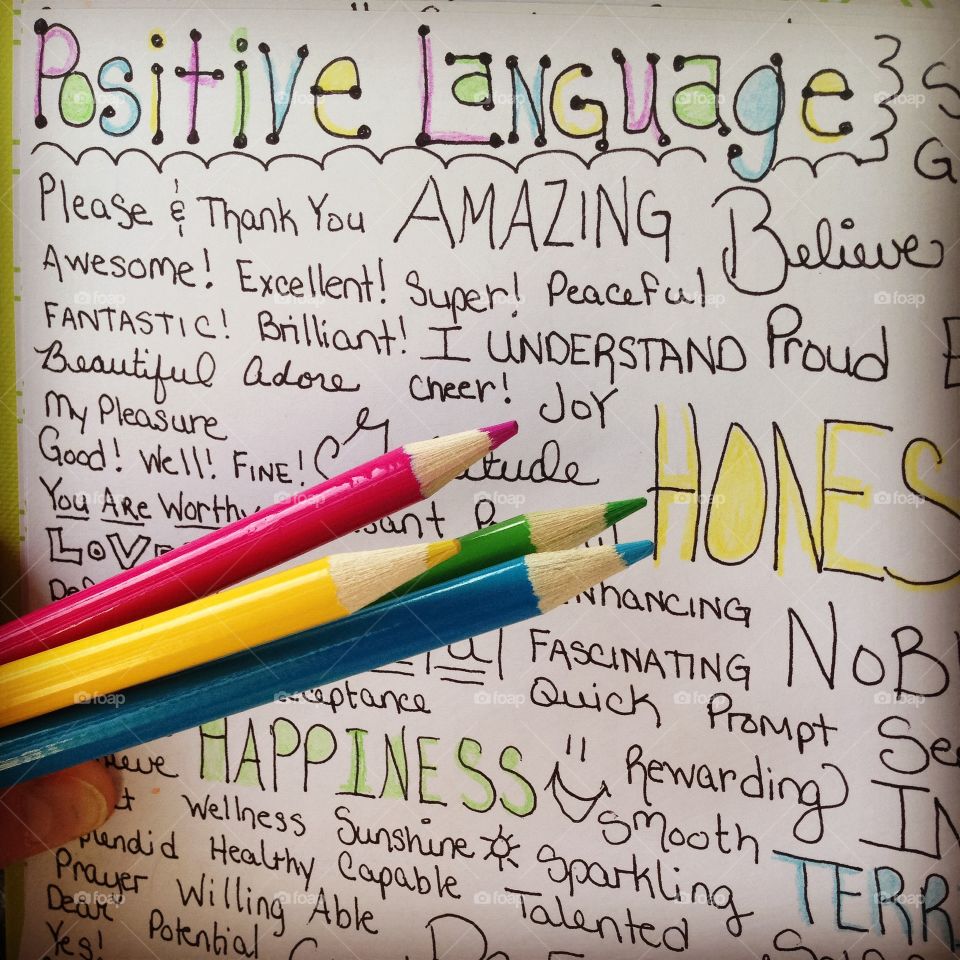 Positive Language
Please & Thank You AMAZING Believe
Awesome! Excellent! Super! Peaceful
FANTASTIC! Brilliant! I UNDERSTAND Proud
Beautiful adore cheer! JOY
My Pleasure
Good! Well! FINE!
You Are Worthy
HONES
ENHANCING
FASCINATING NOB
Acceptance Quick Prompt
HAPPINESS Rewarding
Wellness Sunshine Smooth
Splendid Healthy Capable Sparkling TERR
Prayer Willing Able Talented
Dear Potential
Yes!